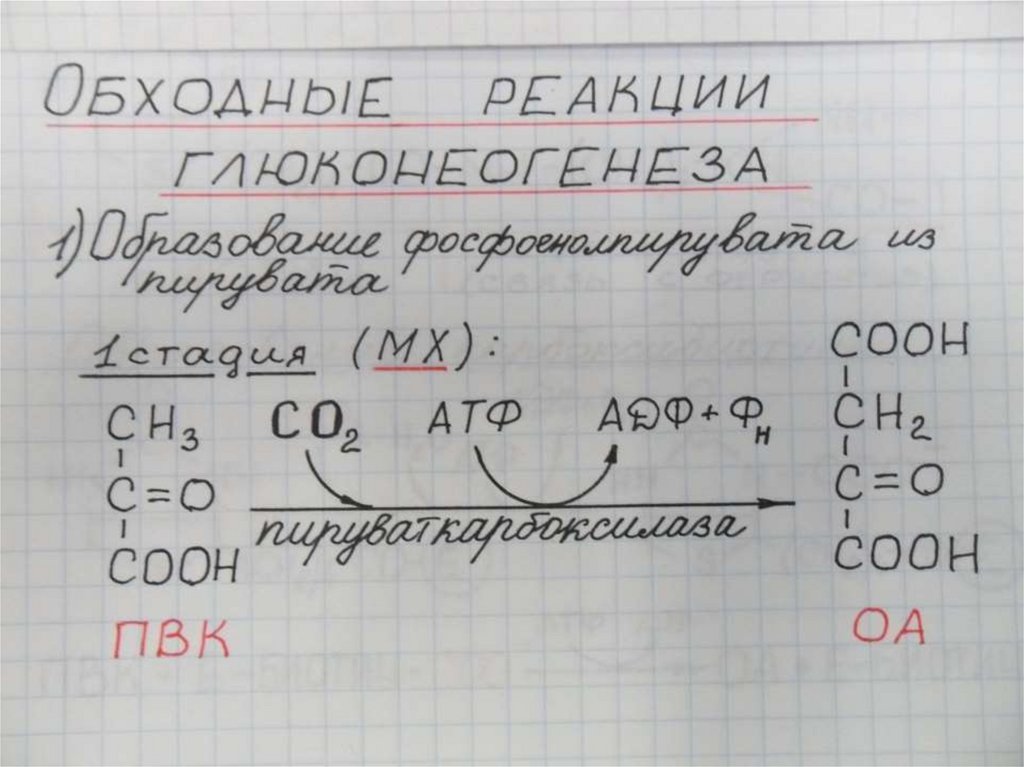 ОБХОДНЫЕ РЕАКЦИИ
ГЛЮКОНЕОГЕНЕЗА
1) Образование фосфоенолпирувата из
пирувата
1 стадия (МХ):
CH₃
C=O
COOH
ПВК
CO₂ АТФ АДФ + Фн
пируваткарбоксилаза
COOH
CH₂
C=O
COOH
ОА